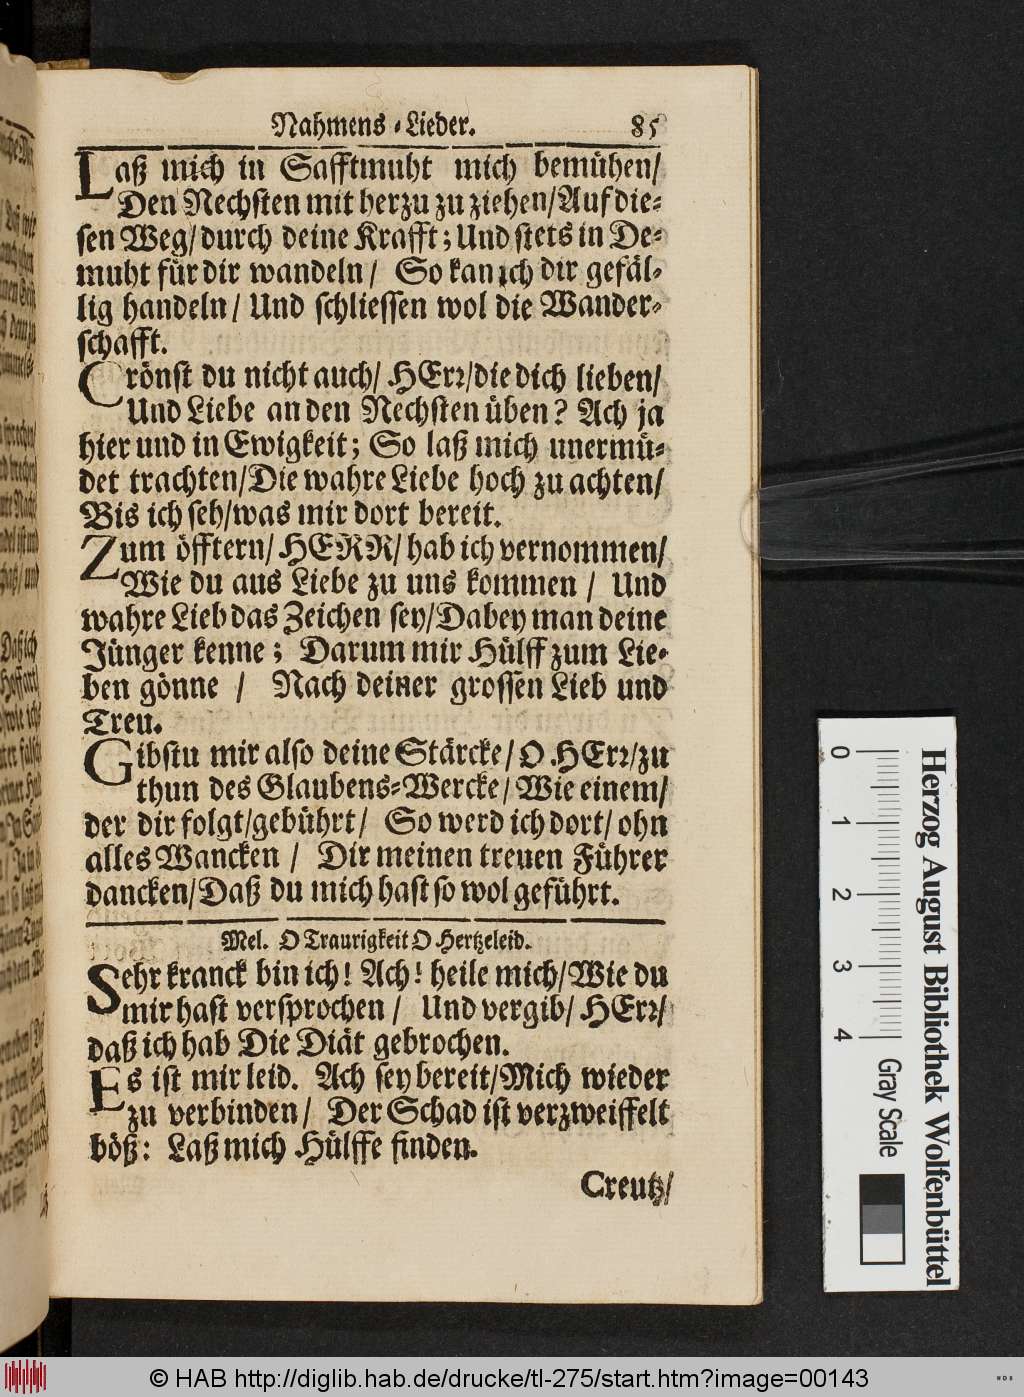 Nahmens-Lieder. 85
Laß mich in Safftmuht mich bemühen/
Den Nechsten mit herzu zu ziehen/Auf die-
sen Weg/durch deine Krafft; Und stets in De-
muht für dir wandeln/ So kan ich dir gefäl-
lig handeln/ Und schliessen wol die Wander-
schafft.
Crönst du nicht auch/ HErr/die dich lieben/
Und Liebe an den Nechsten üben? Ach ja
hier und in Ewigkeit; So laß mich unermü-
det trachten/Die wahre Liebe hoch zu achten/
Bis ich seh/was mir dort bereit.
Zum öfftern/ HERR/ hab ich vernommen/
Wie du aus Liebe zu uns kommen / Und
wahre Lieb das Zeichen sey/Dabey man deine
Jünger kenne; Darum mir Hülff zum Lie-
ben gönne / Nach deiner grossen Lieb und
Treu.
Gibstu mir also deine Stärcke/ O HErr/zu
thun des Glaubens-Wercke/ Wie einem/
der dir folgt/gebührt/ So werd ich dort/ ohn
alles Wancken / Dir meinen treuen Führer
dancken/Daß du mich hast so wol geführt.
Mel. O Traurigkeit O Hertzeleid.
Sehr kranck bin ich! Ach! heile mich/Wie du
mir hast versprochen / Und vergib/ HErr/
daß ich hab Die Diät gebrochen.
Es ist mir leid. Ach sey bereit/Mich wieder
zu verbinden/ Der Schad ist verzweiffelt
böß: Laß mich Hülffe finden.
Creutz/
0 1 2 3 4
Gray Scale
Herzog August Bibliothek Wolfenbüttel
© HAB http://diglib.hab.de/drucke/tl-275/start.htm?image=00143